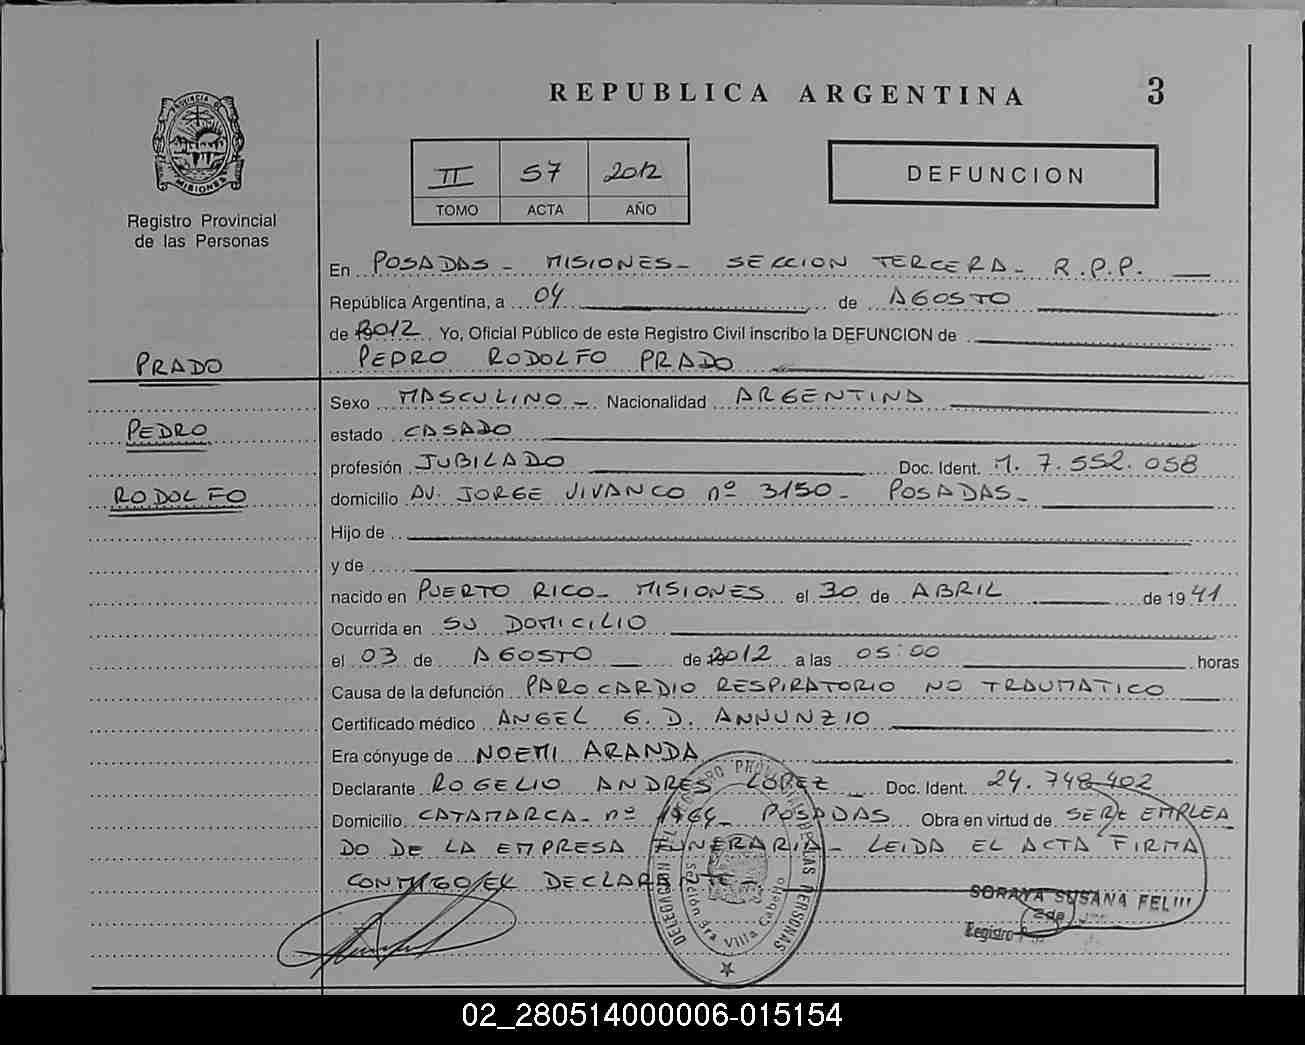 REPUBLICA ARGENTINA
3
PROVINCIA DE
MISIONES
Registro Provincial
de las Personas
II 57 2012
TOMO ACTA AÑO
DEFUNCION
En POSADAS - MISIONES - SECCION TERCERA - R.P.P.
República Argentina, a 04 de AGOSTO
de 2012 Yo, Oficial Público de este Registro Civil inscribo la DEFUNCION de
PRADO
PEDRO RODOLFO PRADO
Sexo MASCULINO - Nacionalidad ARGENTINA
PEDRO
estado CASADO
profesión JUBILADO Doc. Ident. M. 7.552.058
RODOLFO
domicilio AV. JORGE VIVANCO nº 3150 - POSADAS -
Hijo de
y de
nacido en PUERTO RICO - MISIONES el 30 de ABRIL de 1941
Ocurrida en SU DOMICILIO
el 03 de AGOSTO de 2012 a las 05:00 horas
Causa de la defunción PARO CARDIO RESPIRATORIO NO TRAUMATICO
Certificado médico ANGEL G. D. ANNUNZIO
Era cónyuge de NOEMI ARANDA
Declarante ROGELIO ANDRES LOPEZ Doc. Ident. 24.748.402
Domicilio CATAMARCA - nº POSADAS Obra en virtud de SER EMPLEA
DO DE LA EMPRESA FUNERARIA - LEIDA EL ACTA FIRMA
CONMIGO EL DECLARANTE -
DELEGACION DEL REGISTRO PROVINCIAL DE LAS PERSONAS
Sección 3ra Villa Cabello
SORAYA SUSANA
Registro
02_280514000006-015154